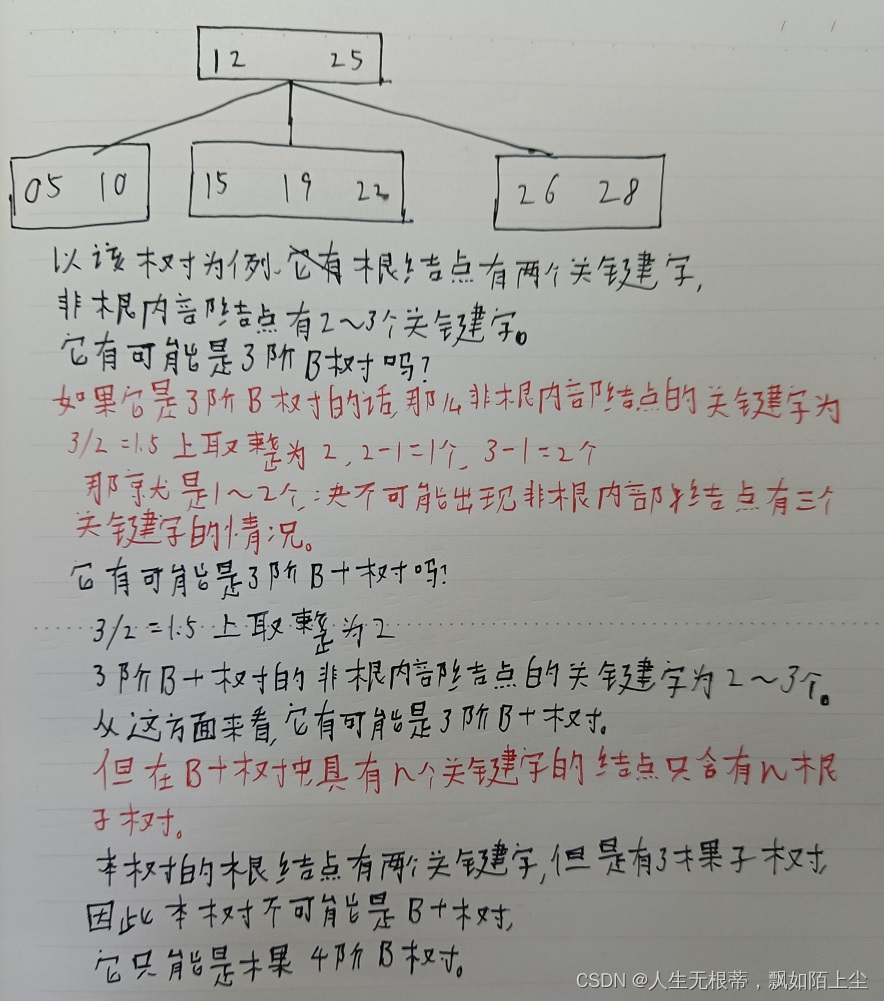 12 25
05 10 15 19 22 26 28
以该树为例,它有根结点有两个关键字,
非根内部结点有2~3个关键字。
它有可能是3阶B树吗?
如果它是3阶B树的话,那么非根内部结点的关键字为
3/2=1.5 上取整为2, 2-1=1个, 3-1=2个
那就是1~2个,决不可能出现非根内部结点有三个
关键字的情况。
它有可能是3阶B+树吗?
3/2=1.5 上取整为2
3阶B+树的非根内部结点的关键字为2~3个。
从这方面来看,它有可能是3阶B+树。
但在B+树中具有n个关键字的结点只含有n棵
子树。
本树的根结点有两个关键字,但是有3棵子树,
因此本树不可能是B+树,
它只能是棵4阶B树。
CSDN @人生无根蒂,飘如陌上尘